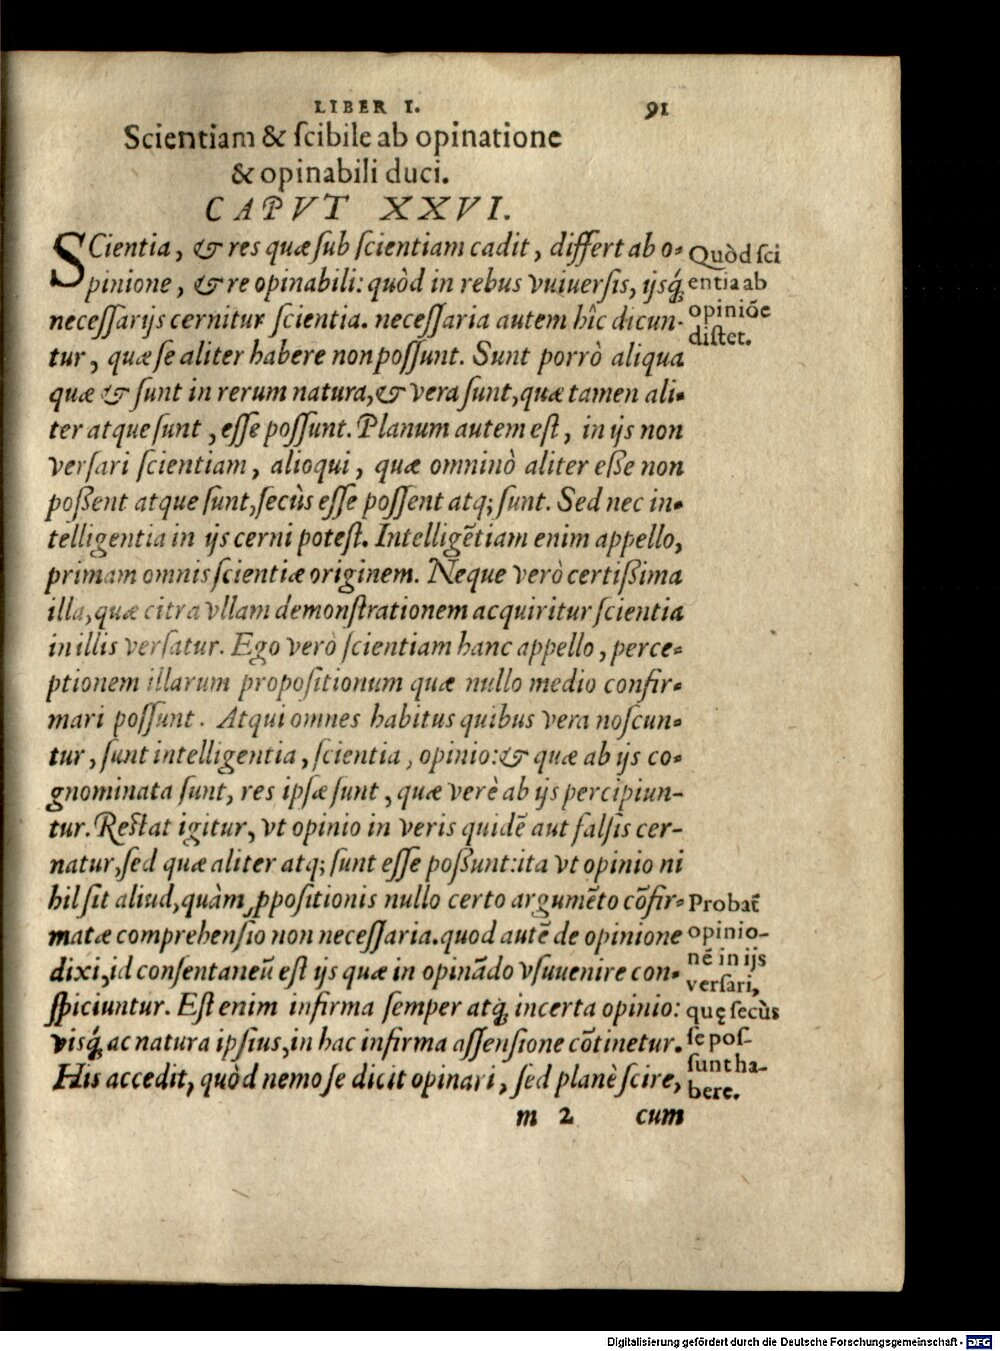 LIBER I. 91
Scientiam & scibile ab opinatione
& opinabili duci.
CAPVT XXVI.
SCientia, & res quæ sub scientiam cadit, differt ab o-
pinione, & re opinabili: quòd in rebus vuiuersis, ijsq́;
necessarijs cernitur scientia. necessaria autem hîc dicun-
tur, quæ se aliter habere non possunt. Sunt porrò aliqua
quæ & sunt in rerum natura, & vera sunt, quæ tamen ali-
ter atque sunt, esse possunt. Planum autem est, in ijs non
versari scientiam, alioqui, quæ omninò aliter eße non
poßent atque sunt, secùs esse possent atq; sunt. Sed nec in-
telligentia in ijs cerni potest. Intelligẽtiam enim appello,
primam omnis scientiæ originem. Neque verò certißima
illa, quæ citra vllam demonstrationem acquiritur scientia
in illis versatur. Ego verò scientiam hanc appello, perce-
ptionem illarum propositionum quæ nullo medio confir-
mari possunt. Atqui omnes habitus quibus vera noscun-
tur, sunt intelligentia, scientia, opinio: & quæ ab ijs co-
gnominata sunt, res ipsæ sunt, quæ verè ab ijs percipiun-
tur. Restat igitur, vt opinio in veris quidẽ aut falsis cer-
natur, sed quæ aliter atq; sunt esse poßunt: ita vt opinio ni
hil sit aliud, quàm ꝓpositionis nullo certo argumẽto cõfir-
matæ comprehensio non necessaria. quod autẽ de opinione
dixi, id consentaneũ est ijs quæ in opinãdo vsuuenire con-
spiciuntur. Est enim infirma semper atq́; incerta opinio:
visq́; ac natura ipsius, in hac infirma assensione cõtinetur.
His accedit, quòd nemo se dicit opinari, sed planè scire,
m 2 cum
Quòd sci
entia ab
opiniõe
distet.
Probat̃
opinio-
nẽ in ijs
versari,
quę secùs
se pos-
sunt ha-
bere.
Digitalisierung gefördert durch die Deutsche Forschungsgemeinschaft - DFG